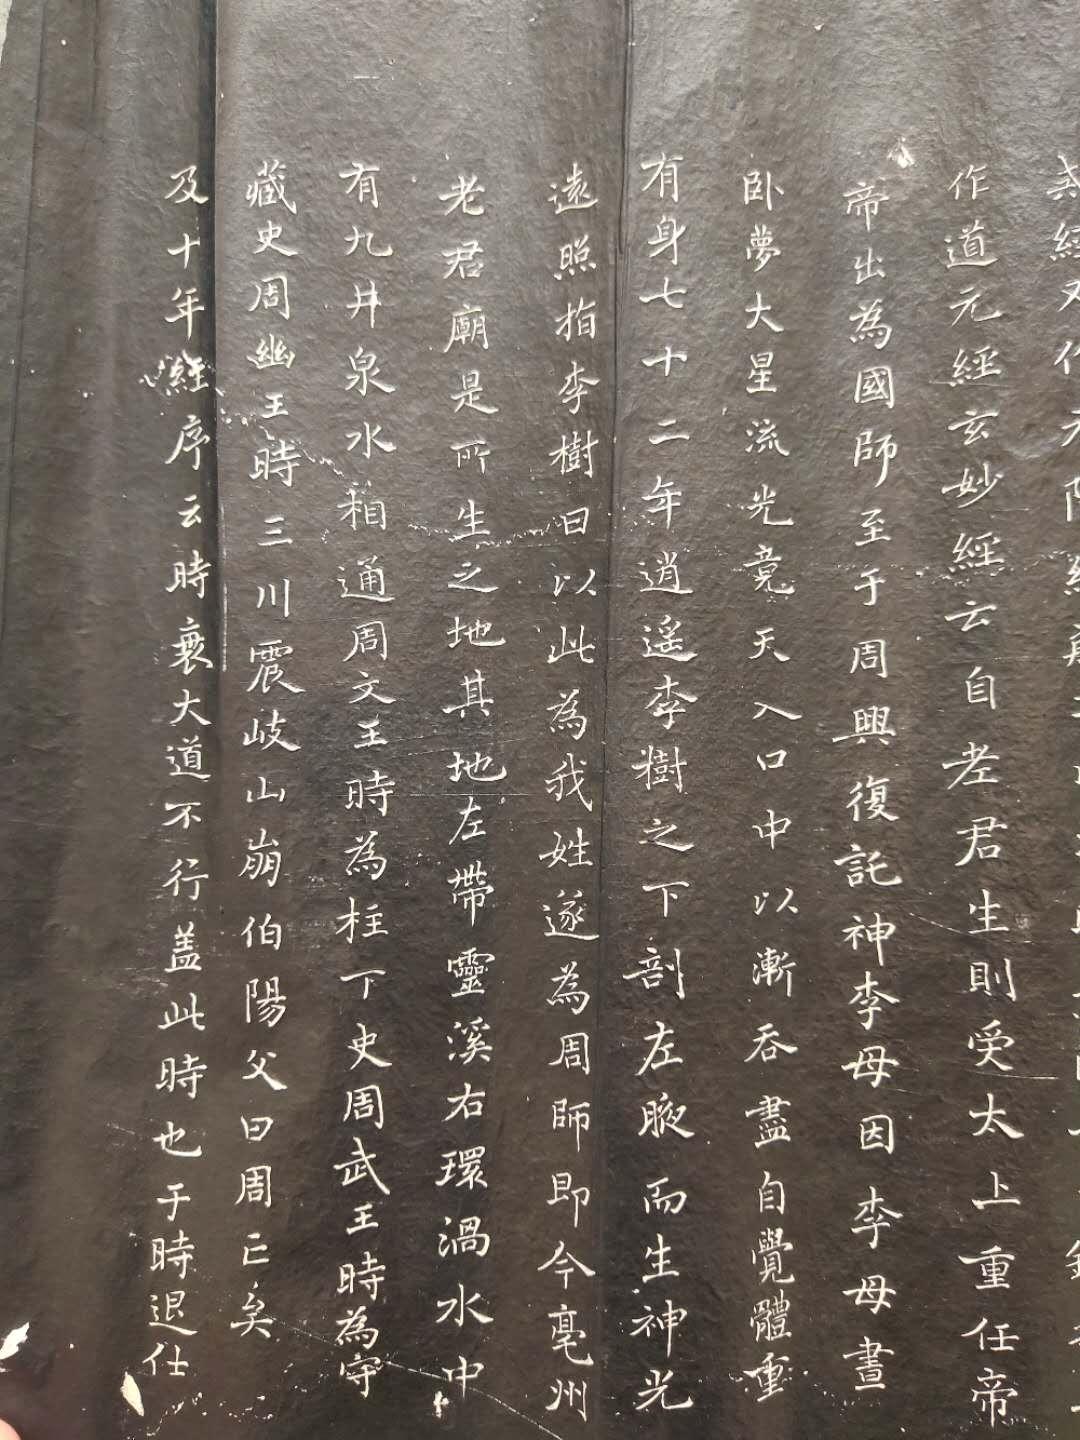 作道元經玄妙經云自老君生則受太上重任帝
帝出為國師至于周興復託神李母因李母晝
卧夢大星流光竟天入口中以漸吞盡自覺體重
有身七十二年逍遥李樹之下剖左腋而生神光
遠照指李樹曰以此為我姓遂為周師即今亳州
老君廟是所生之地其地左帶靈溪右環渦水中
有九井泉水相通周文王時為柱下史周武王時為守
藏史周幽王時三川震岐山崩伯陽父曰周亡矣
及十年經序云時衰大道不行盖此時也于時退仕